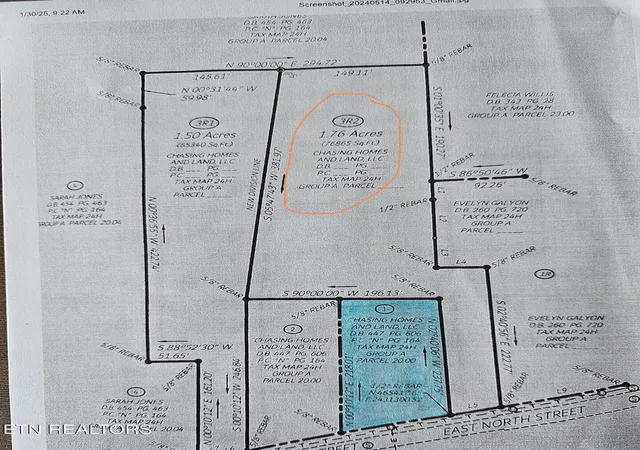 Screenshot_20240514_092953_Gmail.jpg
1/30/25, 9:22 AM
SARAH JONES
D.B. 454 PG. 463
P.C. "N" PG. 164
TAX MAP 24H
GROUP A PARCEL 20.04
5/8" REBAR
N 90°00'00" E 294.72'
5/8" REBAR
145.61'
149.11'
N 00°31'44" W
59.98'
5/8" REBAR
3R1
1.50 Acres
(65340 Sq.Ft.)
CHASING HOMES
AND LAND, LLC
D.B. PG.
P.C. PG.
TAX MAP 24H
GROUP A
PARCEL
3R2
1.76 Acres
(76865 Sq.Ft.)
CHASING HOMES
AND LAND, LLC
D.B. PG.
P.C. PG.
TAX MAP 24H
GROUP A PARCEL
NEW DIVISION LINE
S 01°00'35" E 190.27'
FELECIA WILLIS
D.B. 341 PG. 28
TAX MAP 24H
GROUP A PARCEL 23.00
1/2" REBAR
S 86°50'46" W
92.26'
5/8" REBAR
L1
1/2" REBAR
L2
EVELYN GALYON
D.B. 260 PG. 720
TAX MAP 24H
GROUP A
PARCEL
SARAH JONES
D.B. 454 PG. 463
P.C. "N" PG. 164
TAX MAP 24H
GROUP A PARCEL 20.04
L3
L4
5/8" REBAR
5/8" REBAR
1R
5/8" REBAR
S 90°00'00" W 196.13'
5/8" REBAR
5/8" REBAR
EVELYN GALYON
D.B. 260 PG. 720
TAX MAP 24H
GROUP A
PARCEL
2
CHASING HOMES
AND LAND, LLC
D.B. 447 PG. 606
P.C. "N" PG. 164
TAX MAP 24H
GROUP A
PARCEL 20.00
1
HASING HOMES
AND LAND, LLC
D.B. 447 PG. 606
P.C. "N" PG. 164
TAX MAP 24H
GROUP A
PARCEL 20.00
1/2" REBAR
5/8" REBAR
S 88°52'30" W
51.65'
5/8" REBAR
4
SARAH JONES
D.B. 454 PG. 463
P.C. "N" PG. 164
TAX MAP 24H
GROUP A PARCEL 20.04
5/8" REBAR
L5
5/8" REBAR
L9
5/8" REBAR
EAST NORTH STREET
ETN REALTORS